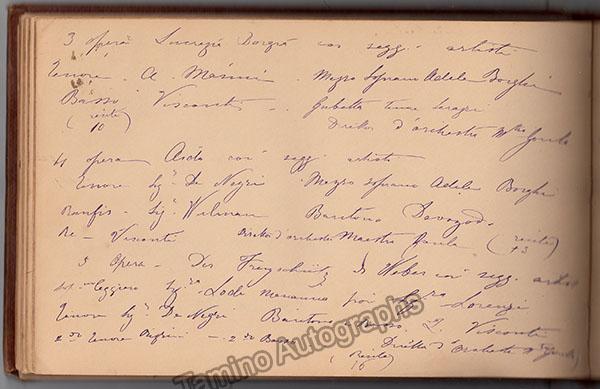 3 opera Lucrezia Borgia coi segg. artisti
Tenore. A. Masini. Mezzo Soprano Adele Borghi
Basso Visconti - Gubetta tenore
(recite 10)
Direttor d'orchestra M.tro Goula
4 opera Aida coi segg. artisti
Tenore Sig. De Negri. Mezzo Soprano Adele Borghi
Ramfis - Sig. Wilman Baritono
Re - Visconti Direttor d'orchestra Maestro Goula (recite 13
5 Opera - Der Freyschütz di Weber coi segg. artisti
leggero Sig.ra Lodi Marianna poi Sig.ra Lorenzi
Tenore Sig. De Negri Baritono Basso Visconti
2do Tenore - 2do Basso
Direttor d'Orchestra M. Goula
(Recite 16
Tamino Autographs